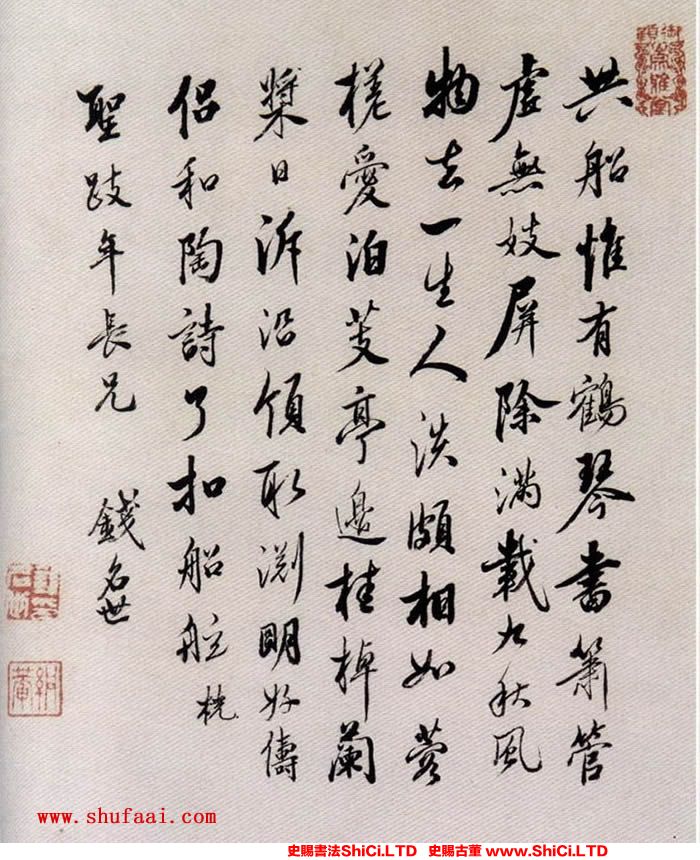 共船惟有鶴琴書簫管
虛無妓屏除滿載九秋風
物去一生人淡頗相如蓉
槎愛泊芰亭邊桂棹蘭
槳日泝沿領取淵明好儔
侶和陶詩了扣船舷
聖跂年長兄 錢名世
絅菴
www.shufaai.com
史賜書法ShiCi.LTD 史賜古董 www.ShiCi.LTD